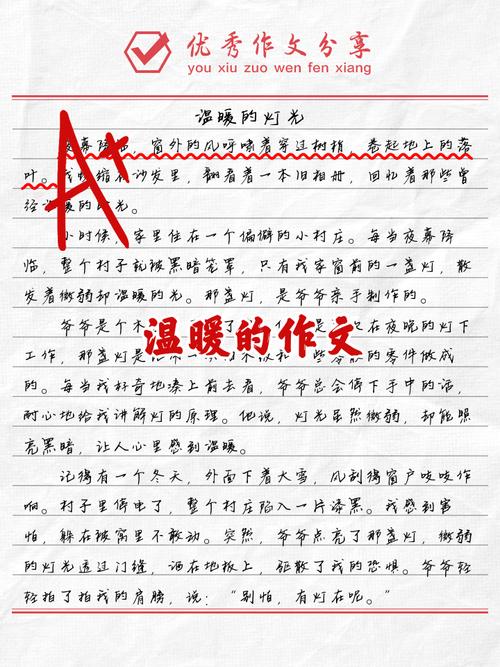 优秀作文分享
you xiu zuo wen fen xiang
温暖的灯光
夜幕降临，窗外的风呼啸着穿过树梢，卷起地上的落
叶。我蜷缩在沙发里，翻看着一本旧相册，回忆着那些曾
经温暖的时光。
小时候，家里住在一个偏僻的小村庄。每当夜幕降
临，整个村子就被黑暗笼罩，只有我家窗前的一盏灯，散
发着微弱却温暖的光。那盏灯，是爷爷亲手制作的。
爷爷是个木 在夜晚的灯下
温暖的作文
工作，那盏灯是 的零件做成
的。每当我好奇地凑上前去看，爷爷总会停下手中的活，
耐心地给我讲解灯的原理。他说，灯光虽然微弱，却能照
亮黑暗，让人心里感到温暖。
记得有一个冬天，外面下着大雪，风刮得窗户吱吱作
响。村子里停电了，整个村庄陷入一片漆黑。我感到害
怕，躲在被窝里不敢动。突然，爷爷点亮了那盏灯，微弱
的灯光透过门缝，洒在地板上，驱散了我的恐惧。爷爷轻
轻拍了拍我的肩膀，说：“别怕，有灯在呢。”
A+